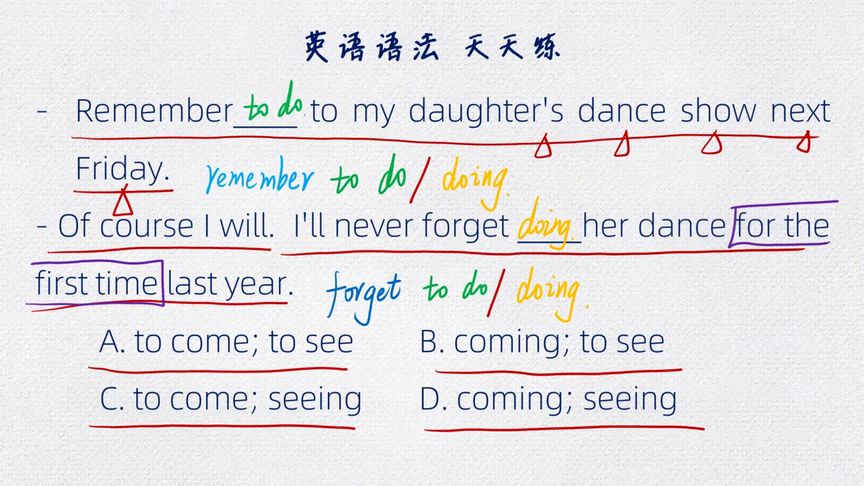 英语语法 天天练
- Remember to do to my daughter's dance show next
Friday. remember to do/doing.
- Of course I will. I'll never forget doing her dance for the
first time last year. forget to do/doing.
A. to come; to see B. coming; to see
C. to come; seeing D. coming; seeing